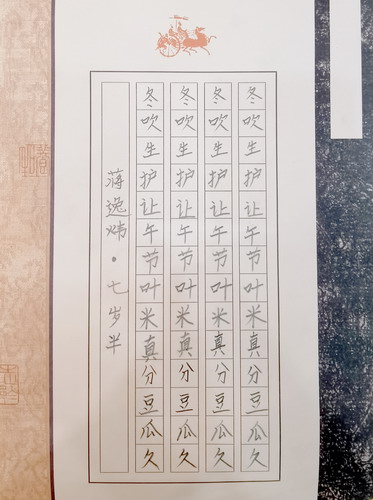 冬吹生护让午节叶米真分豆瓜久
冬吹生护让午节叶米真分豆瓜久
冬吹生护让午节叶米真分豆瓜久
冬吹生护让午节叶米真分豆瓜久
蒋逸炜·七岁半